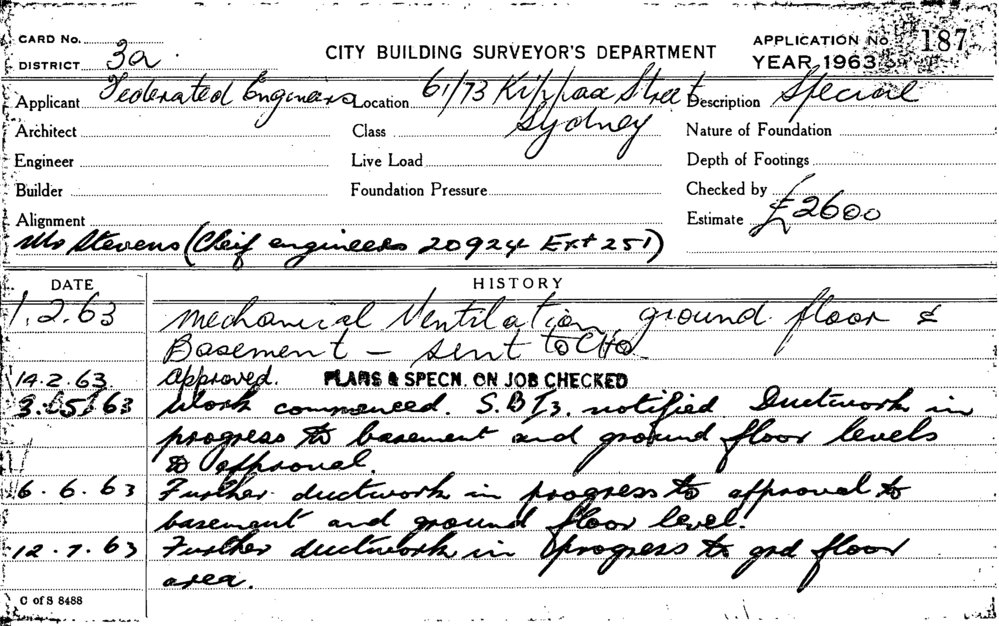 CARD No.
DISTRICT 3a.
CITY BUILDING SURVEYOR'S DEPARTMENT
APPLICATION No. 187
YEAR 1963
Applicant Federated Engineers Location 61/73 Kippax Street Description Special
Sydney
Architect Class Nature of Foundation
Engineer Live Load Depth of Footings
Builder Foundation Pressure Checked by
Alignment Estimate £2600
Mr Stevens (Cheif engineers 20924 Ext 251)
DATE HISTORY
1.2.63 Mechanical Ventilation ground floor &
Basement - sent to CHO
14.2.63 Approved. PLANS & SPECN. ON JOB CHECKED
3.5.63 Work commenced. S.B.I3. notified. Ductwork in
progress to basement and ground floor levels
to approval.
6.6.63 Further ductwork in progress to approval to
basement and ground floor level.
12.7.63 Further ductwork in progress to grd floor
area.
C of S 8488